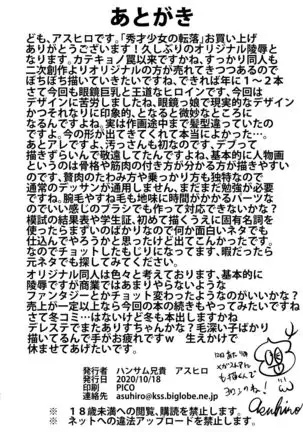 あとがき
ども、アスヒロです。「秀才少女の転落」お買い上げ
ありがとうございます!久しぶりのオリジナル陵辱と
なります。カテキョノ罠以来ですかね、すっかり同人も
二次創作よりオリジナルの方が売れてきつつあるので
ぼちぼち描いていきたいですね、できれば年に1~2本
さて今回も眼鏡巨乳と王道なヒロインです、今回は
デザインに苦労しましたね、眼鏡っ娘で現実的なデザイン
かつそれなりに印象的、となると微妙なところに
なるんですよね。実は作画途中まで髪型違っていたの
ですよ。今の形が出てきてくれて本当によかった…。
あとアレですよ、汚っさんも初なのです、デブって
描きずらいんで敬遠してたんですよね、基本的に人物画
というのは骨格や筋肉の付き方が分かる方が描きやすい
のです、贅肉のたわみ方や乗っかり方も独特なので
通常のデッサンが通用しません、まだまだ勉強が必要
ですね。腕毛やすね毛も地味に時間がかかるパーツな
のでいい感じのブラシでも作って対応できないかな?
模試の結果表や学生証、初めて描くうえに固有名詞を
使ったらまずいのばかりなので何か面白いネタでも
仕込んでやろうかと思ったけど出てこんかったです。
なのでチョットしたもじりになってます、暇だったら
元ネタでも探してみてください。
オリジナル同人は色々と考えております、基本的に
陵辱ですが商業ではあまりやらないような
ファンタジーとかチョット変わったようなのがいいかな?
売上が一定以上なら今回の本の続きもやってみたいですね
さて冬コミ…はないけど冬も本出しますかね
デレステでまたありすちゃんかな?毛深い子ばかり
描いてるんで手がお疲れですw 生えかけで
休ませてあげたいです。
発行者 ハンサム兄貴 アスヒロ
発行日 2020/10/18
印刷 PICO
連絡先 asuhiro@kss.biglobe.ne.jp
Asuhiro
※18歳未満への閲覧、購読を禁止します。
※ネットへの違法アップロードを禁止します。